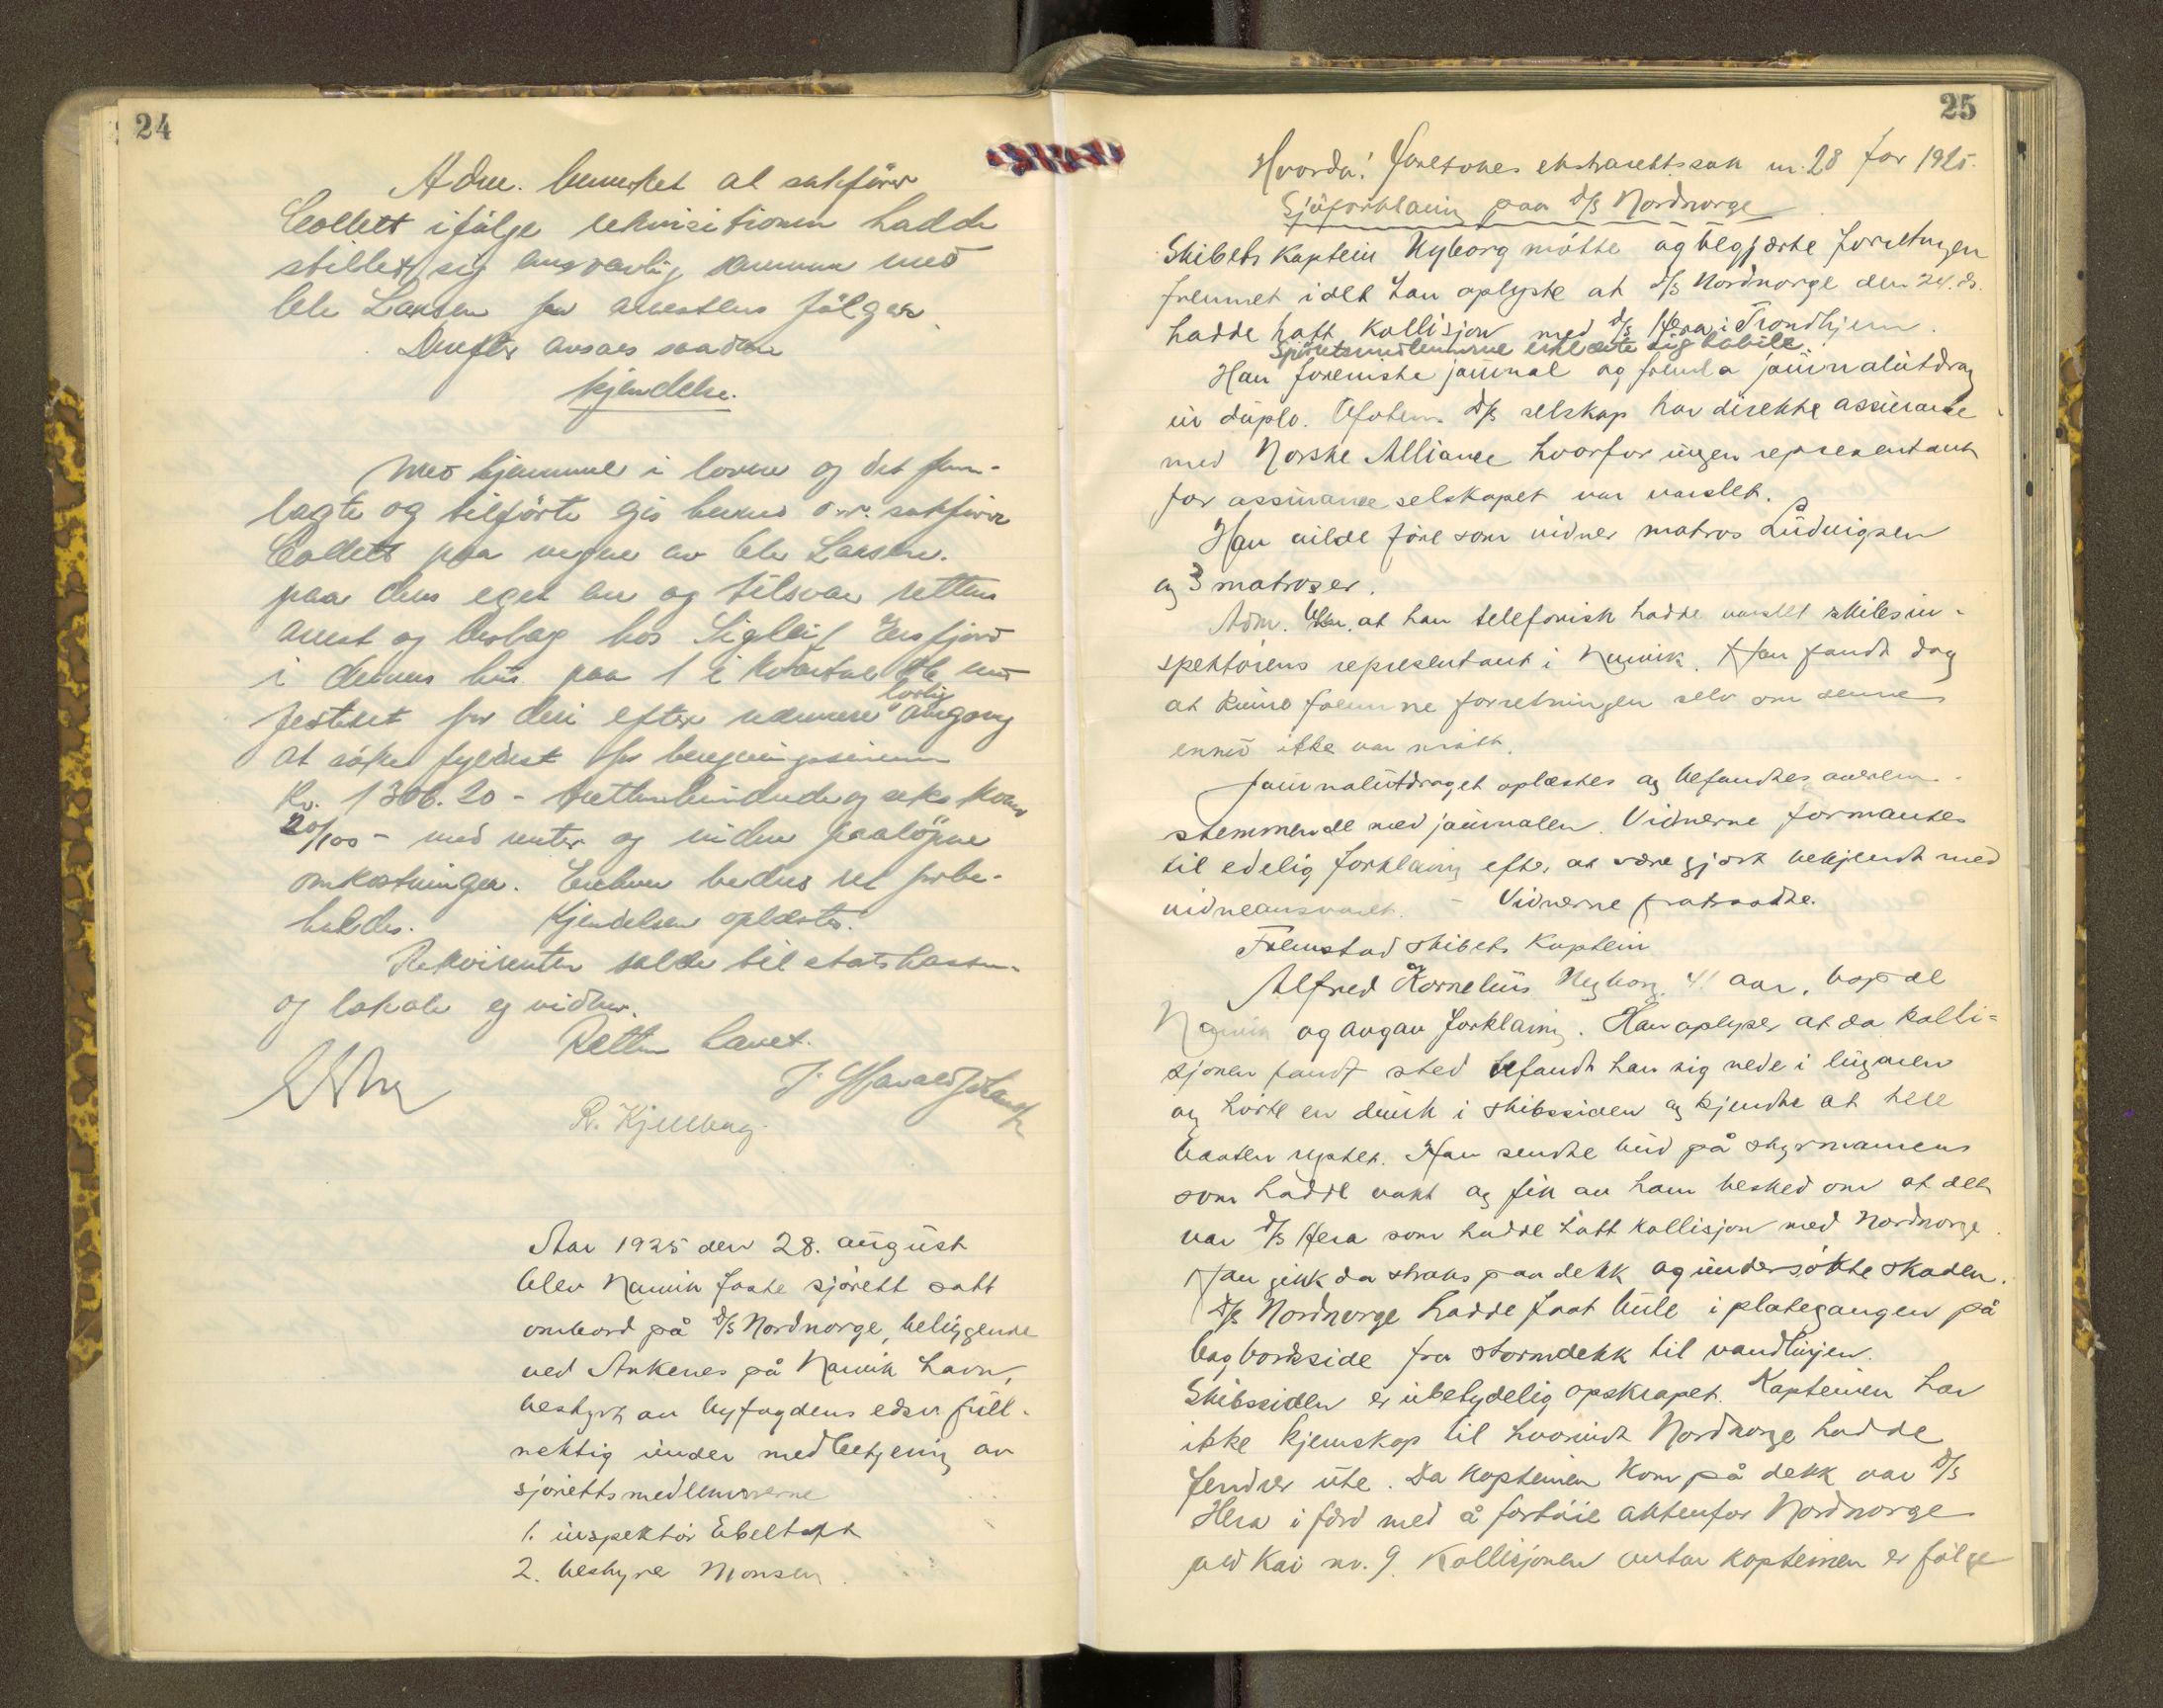 24
Adm. bemerket at sakfører
Collett ifølge rekvisitionen hadde
stillet sig ansvarlig sammen med
Ole Larsen for arrestens følger.
Derefter avsaes saadan
kjendelse.
Med hjemmel i loven og det frem-
lagte og tilførte gis herved o.r. sakfører
Collett paa vegne av Ole Larsen
paa dens eget an og tilsvar rettens
arrest og beslag hos Sigleif Ersfjord
i dennes hus paa 1
festetet for deri efter nærmere lovlig omgang
at søke fyldest for
Kr. 1306.20 - trettenhundrede og seks kroner
20/100 - med renter og videre paaløpne
omkostninger. Enhver bedres ret forbe-
holdes. Kjendelsen oplæstes.
Rekvirenten til statskassen
og lokale ej videre.
Retten hævet.
R. Kjellberg.
Aar 1925 den 28. august
blev Narvik faste sjørett satt
ombord på D/S Nordnorge, beliggende
ved Ankenes på Narvik havn,
bestyrt av byfogdens edsv. full-
mektig under medbetjening av
sjørettsmedlemmerne
1. inspektør Ebeltoft
2. bestyrer Monsen.
25
Hvorda! Foretokes ekstrarettssak nr. 28 for 1925.
Sjøforklaring paa D/S Nordnorge
Skibets kaptein Nyborg møtte og begjærte forretningen
fremmet idet han oplyste at D/S Nordnorge den 24. ds.
hadde hatt kollisjon med D/S Hera i Trondhjem.
Sjørettsmedlemmerne erklærte sig habile.
Han foreviste journal og fremla journalutdrag
in duplo. Ofotens D/S selskap har direkte assurance
med Norske Alliance hvorfor ingen representant
for assuranceselskapet var varslet.
Han vilde føre som vidner matros Ludvigsen
og 3 matroser.
Adm. bem. at han telefonisk hadde varslet skibsin-
spektørens representant i Narvik. Han fandt dog
at kunne fremme forretningen selv om denne
ennu ikke var møtt.
Journalutdraget oplæstes og befandtes overens-
stemmende med journalen. Vidnerne formantes
til edelig forklaring efter at være gjort bekjendt med
vidneansvaret. - Vidnerne fratraadte.
Fremstod skibets kaptein
Alfred Kornelius Nyborg, 41 aar, bopæl
Narvik og avgav forklaring. Han oplyser at da kolli-
sjonen fandt sted befandt han sig nede i lugaren
og hørte en dunk i skibssiden og kjendte at hele
baaten rystet. Han sendte bud på styrmannen
som hadde vakt og fik av ham besked om at det
var D/S Hera som hadde hatt kollisjon med Nordnorge.
Han gikk da straks paa dekk og undersøkte skaden.
D/S Nordnorge hadde faat bule i plategangen på
bagbordside fra stormdekk til vandlinjen.
Skibssiden er ubetydelig opskrapet. Kapteinen har
ikke kjenskap til hvorvidt Nordnorge hadde
fendrer ute. Da kapteinen kom på dekk var D/S
Hera i ferd med å fortøie aktenfor Nordnorge
ved kai nr. 9. Kollisjonen antar kapteinen er følge